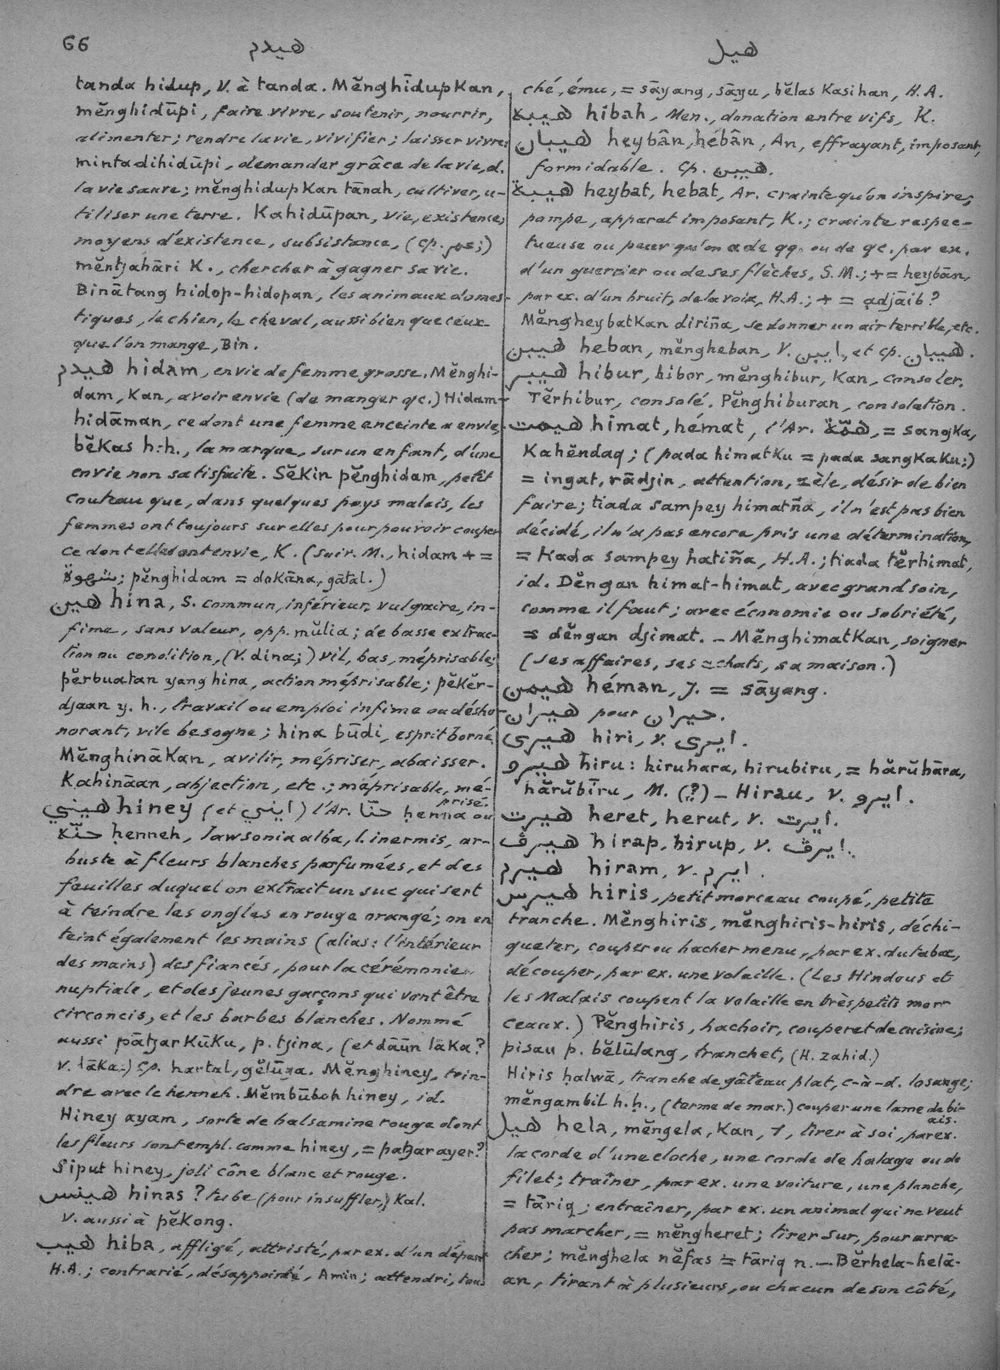 66
هيدم
هيل
tanda hidup, V. à tanda. Mĕnghīdupkan,
mĕnghidūpi, faire vivre, soutenir, nourrir,
alimenter; rendre la vie, vivifier; laisser vivre
mintadihidūpi, demander grâce de la vie, d.
la vie sauve; mĕnghidupkan tānah, cultiver, u-
tiliser une terre. Kahidūpan, vie, existence,
moyens d'existence, subsistance, (cp. عمر;)
mĕntjahāri K., chercher à gagner sa vie.
Binātang hidop-hidopan, les animaux domes-
tiques, le chien, le cheval, aussi bien que ceux-
que l'on mange, Bin.
هيدم hidam, envie de femme grosse. Mĕnghi-
dam, Kan, avoir envie (de manger qc.) Hidam-
hidāman, ce dont une femme enceinte a envie,
bĕkas h-h., la marque, sur un enfant, d'une
envie non satisfaite. Sĕkin pĕnghidam, petit
couteau que, dans quelques pays malais, les
femmes ont toujours sur elles pour pouvoir couper
ce dont elles ont envie, K. (Suir. M., hidam + =
شهوة; pĕnghidam = dokāna, gātal.)
هين hina, S. commun, inférieur, vulgaire, in-
fime, sans valeur, opp. mŭlia; de basse extrac-
tion ou condition, (V. dina;) vil, bas, méprisable;
pĕrbuatan yang hina, action méprisable; pĕkĕr-
djaan y. h., travail ou emploi infime ou désho-
norant, vile besogne; hina būdi, esprit borné
Mĕnghinākan, avilir, mépriser, abaisser.
Kahināan, abjection, etc.; méprisable, mé-
prisé.
هيني hiney (et ايني) l'Ar. حنّا ḥenna ou
حنّة ḥenneh, lawsonia alba, l. inermis, ar-
buste à fleurs blanches parfumées, et des
feuilles duquel on extrait un suc qui sert
à teindre les ongles en rouge orangé; on en
teint également les mains (alias: l'intérieur
des mains) des fiancés, pour la cérémonie
nuptiale, et des jeunes garçons qui vont être
circoncis, et les barbes blanches. Nommé
aussi pātjar Kūku, p. tjina, (et dāūn lāka?
V. lāka.) Cp. hartal, gĕlūga. Mĕnghiney, tein-
dre avec le henneh. Mĕmbūboh hiney, id.
Hiney ayam, sorte de balsamine rouge dont
les fleurs sont empl. comme hiney, = patjar ayer?
Siput hiney, joli cône blanc et rouge.
هينس hinas? tube (pour insuffler,) Kal.
V. aussi à pĕkong.
هيب hiba, affligé, attristé, par ex. d'un départ
H.A.; contrarié, désappointé, Amin; attendri, tou-
ché, ému, = sāyang, sāyu, bĕlas Kasihan, H.A.
هيبة hibah, Men., donation entre vifs, K.
هيبان heybân, hébân, An, effrayant, imposant,
formidable. Cp. هيبن.
هيبة heybat, hebat, Ar. crainte qu'on inspire,
pompe, apparat imposant, K.; crainte respec-
tueuse ou peur qu'on a de qq. ou de qc. par ex.
d'un guerrier ou de ses flèches, S.M.; + = heybān,
par ex. d'un bruit, de la voix, H.A.; + = adjāib?
Mĕngheybatkan diriña, se donner un air terrible, etc.
هيبن heban, mĕngheban, V. ايبن, et cp. هيبان.
هيبر hibur, hibor, mĕnghibur, Kan, consoler.
Tĕrhibur, consolé. Pĕnghiburan, consolation.
هيمت himat, hémat, l'Ar. همّة, = sangka,
Kahĕndaq; (pada himatku = pada sangkaku;)
= ingat, rādjin, attention, zèle, désir de bien
faire; tiada sampey himatña, il n'est pas bien
décidé, il n'a pas encore pris une détermination,
= tiada sampey hatiña, H.A.; tiada tĕrhimat,
id. Dĕngan himat-himat, avec grand soin,
comme il faut; avec économie ou sobriété,
= dĕngan djimat. — Mĕnghimatkan, soigner
(ses affaires, ses achats, sa maison.)
هيمن héman, J. = sāyang.
هيران pour حيران.
هيري hiri, V. ايري.
هيرو hiru: hiruhara, hirubiru, = hărŭhāra,
hărŭbīru, M. (?) — Hirau, V. ايرو.
هيرت heret, herut, V. ايرت.
هيرڤ hirap, hirup, V. ايرڤ.
هيرم hiram, V. ايرم.
هيرس hiris, petit morceau coupé, petite
tranche. Mĕnghiris, mĕnghiris-hiris, déchi-
queter, couper ou hacher menu, par ex. du tabac,
découper, par ex. une volaille. (Les Hindous et
les Malais coupent la volaille en très petits mor-
ceaux.) Pĕnghiris, hachoir, couperet de cuisine;
pisau p. bĕlūlang, tranchet, (H. zahid.)
Hiris ḥalwā, tranche de gâteau plat, c-à-d. losange;
mĕngambil h.ḥ., (terme de mar.) couper une lame de bi-
ais.
هيل hela, mĕngela, Kan, 1, tirer à soi, par ex.
la corde d'une cloche, une corde de halage ou de
filet; traîner, par ex. une voiture, une planche,
= tāriq; entraîner, par ex. un animal qui ne veut
pas marcher, = mĕngheret; tirer sur, pour arra-
cher; mĕnghela nĕfas = tāriq n. — Bĕrhela-helā-
an, tirant à plusieurs, ou chacun de son côté,